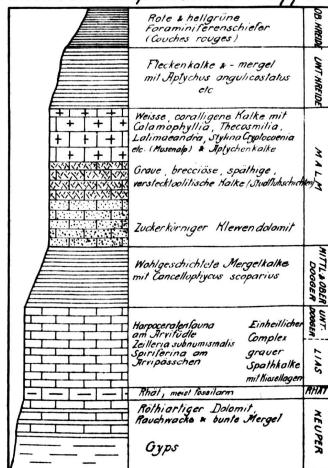 Rote & hellgrüne
Foraminiferenschiefer
(Couches rouges)
OB. KREIDE
Fleckenkalke & -mergel
mit Aptychus angulicostatus
etc
UNT. KREIDE
Weisse, coralligene Kalke mit
Calamophyllia, Thecosmilia,
Latimaeandra, Stylina Cryptocoenia
etc. (Musenalp) & Aptychenkalke
Graue, brecciöse, späthige,
versteckt oolitische Kalke (Studfluhschichten)
Zuckerkörniger Klewendolomit
MALM
Wohlgeschichtete Mergelkalke
mit Cancellophycus scoparius
MITTL & OBER
DOGGER
UNT-
DOGGER
Harpoceratenfauna
am Arvifüdle
Zeilleria subnumismalis
Spiriferina am
Arvipässchen
Einheitlicher
Complex
grauer
Spathkalke
mit Kiesellagen
LIAS
Rhät, meist fossilarm
RHÄT
Röthiartiger Dolomit,
Rauchwacke & bunte Mergel
Gyps
KEUPER